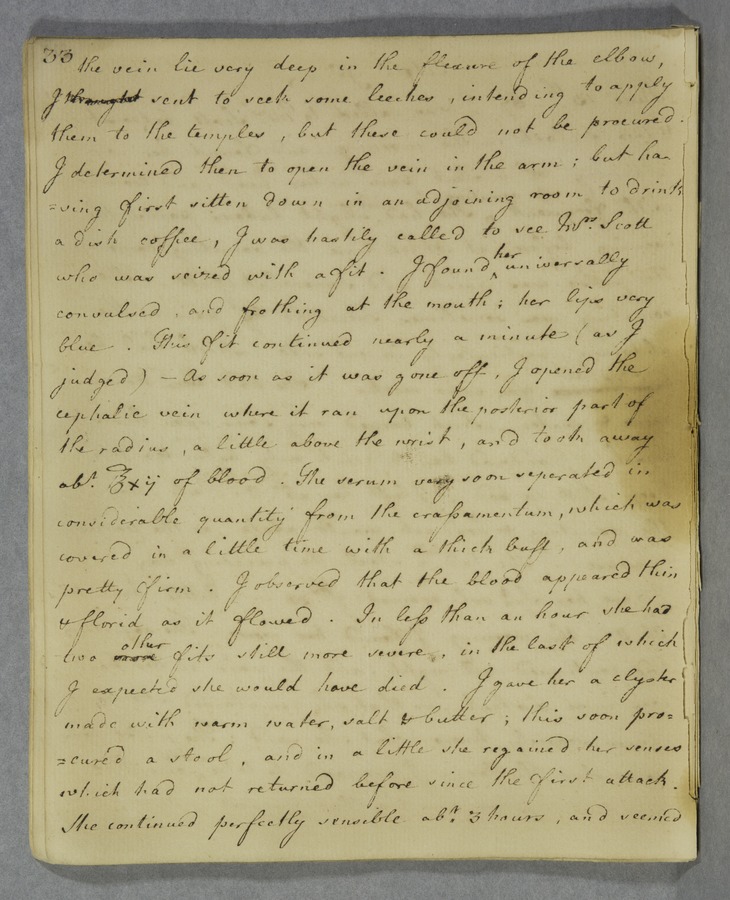 33 the vein lie very deep in the flexure of the elbow,
I thought sent to seek some leeches, intending to apply
them to the temples, but these could not be procured.
I determined then to open the vein in the arm; but ha-
=ving first sitten down in an adjoining room to drink
a dish coffee, I was hastily called to see Mrs. Scott
who was seized with a fit. I found her universally
convulsed, and frothing at the mouth; her lips very
blue. This fit continued nearly a minute (as I
judged) – As soon as it was gone off, I opened the
cephalic vein where it ran upon the posterior part of
the radius, a little above the wrist, and took away
abt. ℥xij of blood. The serum very soon seperated in
considerable quantity from the crassamentum, which was
covered in a little time with a thick buff, and was
pretty firm. I observed that the blood appeared thin
& florid as it flowed. In less than an hour she had
two other fits still more severe, in the last of which
I expected she would have died. I gave her a clyster
made with warm water, salt & butter; this soon pro=
=cured a stool, and in a little she regained her senses
which had not returned before since the first attack.
She continued perfectly sensible abt. 3 hours, and seemed